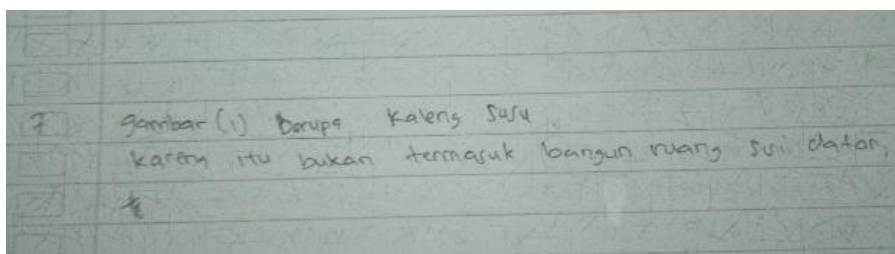 7 gambar (1) berupa kaleng susu.
karena itu bukan termasuk bangun ruang sisi datar,